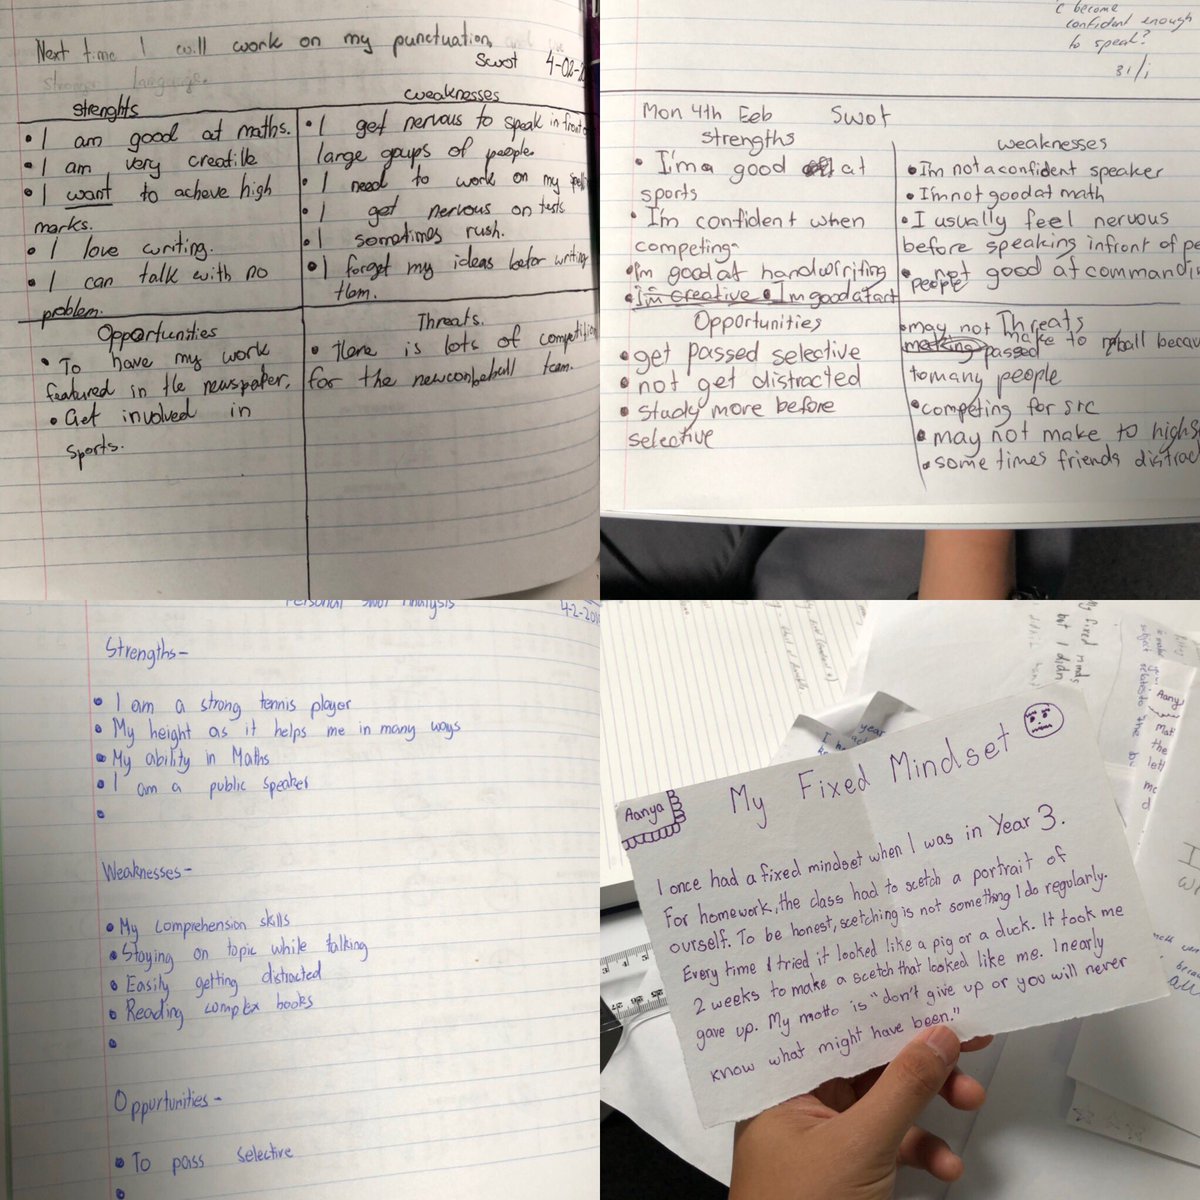 Next time I will work on my punctuation, and
stronger language.
Swot 4-02-2
Strenghts
• I am good at maths.
• I am very creatille
• I want to acheve high
marks.
• I love writing.
• I can talk with no
problem.
Weaknesses
• I get nervous to speak in front
large goups of people.
• I need to work on my
• I get nervous on tests
• I sometimes rush.
• I forget my ideas befor writing
tham.
Opportunities
• To have my work
featured in the newspaper.
• Get involved in
sports.
Threats.
• there is lots of competition
for the newconbeball team.
become
confident enough
to speak?
31/1
Mon 4th Feb Swot
Strengths
• I'm a good at
sports
• I'm confident when
competing
• I'm good at handwriting
• I'm creative • I'm good at art
weaknesses
• I'm not a confident speaker
• I'm not good at math
• I usually feel nervous
before speaking infront of pe
• not good at commandin
people
Opportunities
• get passed selective
• not get distracted
• study more before
selective
Threats
• may not make to ball becau
passed
to many people
• competing for src
• may not make to highs
• some times friends distrac
Personal Swot Analysis
4-2-20
Strengths-
• I am a strong tennis player
• My height as it helps me in many ways
• My ability in Maths
• I am a public speaker
•
Weaknesses-
• My comprehension skills
• Staying on topic while talking
• Easily getting distracted
• Reading complex books
•
Oppurtunities-
• To pass selective
•
My fixed minds
but I didn
subject
relates to
year
Aanya
the
Aanya
My Fixed Mindset
I once had a fixed mindset when I was in Year 3.
For homework, the class had to scetch a portrait of
ourself. To be honest, scetching is not something I do regularly.
Every time I tried it looked like a pig or a duck. It took me
2 weeks to make a scetch that looked like me. I nearly
gave up. My motto is "don't give up or you will never
know what might have been."